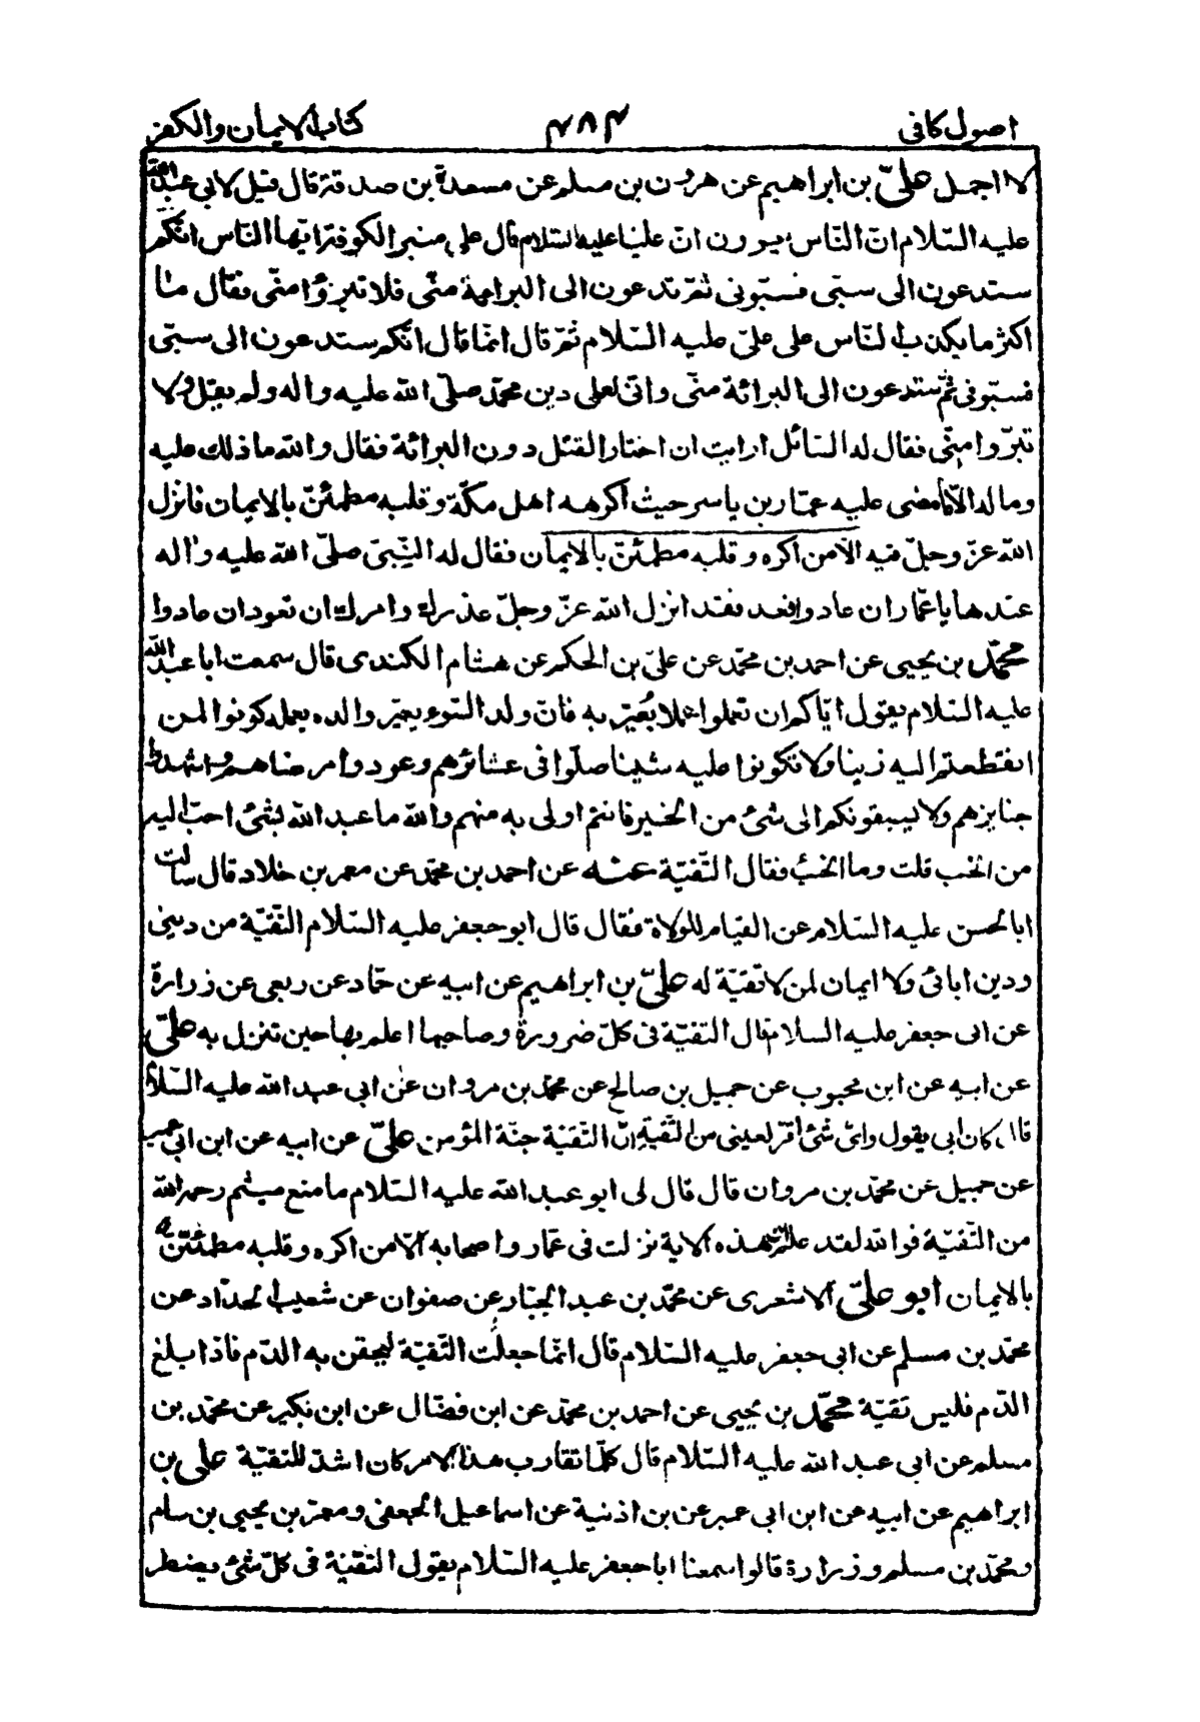 اصول كافى ٤٨٤ كتاب الايمان والكفر
لا اجمل علىّ بن ابراهيم عن هرون بن مسلم عن مسعدة بن صدقة قال قيل لابى عبد الله
عليه السّلام انّ النّاس يروون انّ عليّا عليه السّلام قال على منبر الكوفة ايّها النّاس انّكم
ستدعون الى سبّى فسبّونى ثمّ تدعون الى البراءة منّى فلا تبرّؤا منّى فقال ما
اكثر ما يكذب النّاس على علىّ عليه السّلام ثمّ قال انّما قال انّكم ستدعون الى سبّى
فسبّونى ثمّ ستدعون الى البرائة منّى وانّى لعلى دين محمّد صلّى الله عليه واله ولم يقل ولا
تبرّوا منّى فقال له السّائل ارايت ان اختار القتل دون البرائة فقال والله ما ذلك عليه
وما له الّا ما مضى عليه عمّار بن ياسر حيث اكرهه اهل مكّة وقلبه مطمئنّ بالايمان فانزل
الله عزّ وجلّ فيه الّا من اكره وقلبه مطمئنّ بالايمان فقال له النّبىّ صلّى الله عليه واله
عندها يا عمّار ان عادوا فعد فقد انزل الله عزّ وجلّ عذرك وامرك ان تعود ان عادوا
محمّد بن يحيى عن احمد بن محمّد عن علىّ بن الحكم عن هشام الكندى قال سمعت ابا عبد الله
عليه السّلام يقول ايّاكم ان تعملوا عملا يُعيّر به فانّ ولد السّوء يعيّر والده بعمله كونوا لمن
انقطعتم اليه زينا ولا تكونوا عليه شينا صلّوا فى عشائرهم وعودوا مرضاهم واشهدوا
جنايزهم ولا يسبقونكم الى شئ من الخير فانتم اولى به منهم والله ما عبد الله بشئ احبّ اليه
من الخبء قلت وما الخبء فقال التّقيّة عنه عن احمد بن محمّد عن معمر بن خلاد قال سالت
ابا الحسن عليه السّلام عن القيام للولاة فقال قال ابو جعفر عليه السّلام التّقيّة من دينى
ودين ابائى ولا ايمان لمن لا تقيّة له علىّ بن ابراهيم عن ابيه عن حمّاد عن ربعى عن زرارة
عن ابى جعفر عليه السلام قال التقيّة فى كلّ ضرورة وصاحبها اعلم بها حين تنزل به علىّ
عن ابيه عن ابن محبوب عن جميل بن صالح عن محمّد بن مروان عن ابى عبد الله عليه السّلام
قال كان ابى يقول واىّ شئ اقرّ لعينى من التّقيّة انّ التّقيّة جنّة المؤمن علىّ عن ابيه عن ابن ابى عمير
عن جميل عن محمّد بن مروان قال قال لى ابو عبد الله عليه السّلام ما منع ميثم رحمه الله
من التّقيّة فوالله لقد علم انّ هذه الاية نزلت فى عمّار واصحابه الّا من اكره وقلبه مطمئنّ
بالايمان ابو علىّ الاشعرى عن محمّد بن عبد الجبّار عن صفوان عن شعيب الحدّاد عن
محمّد بن مسلم عن ابى جعفر عليه السّلام قال انّما جعلت التّقيّة ليحقن به الدّم فاذا بلغ
الدّم فليس تقيّة محمّد بن يحيى عن احمد بن محمّد عن ابن فضّال عن ابن بكير عن محمّد بن
مسلم عن ابى عبد الله عليه السّلام قال كلّما تقارب هذا الامر كان اشدّ للتقيّة على بن
ابراهيم عن ابيه عن ابن ابى عمير عن بن اذنية عن اسماعيل الجعفى ومعمّر بن يحيى بن سام
ومحمّد بن مسلم وزرارة قالوا سمعنا ابا جعفر عليه السّلام يقول التقيّة فى كلّ شئ يضطر